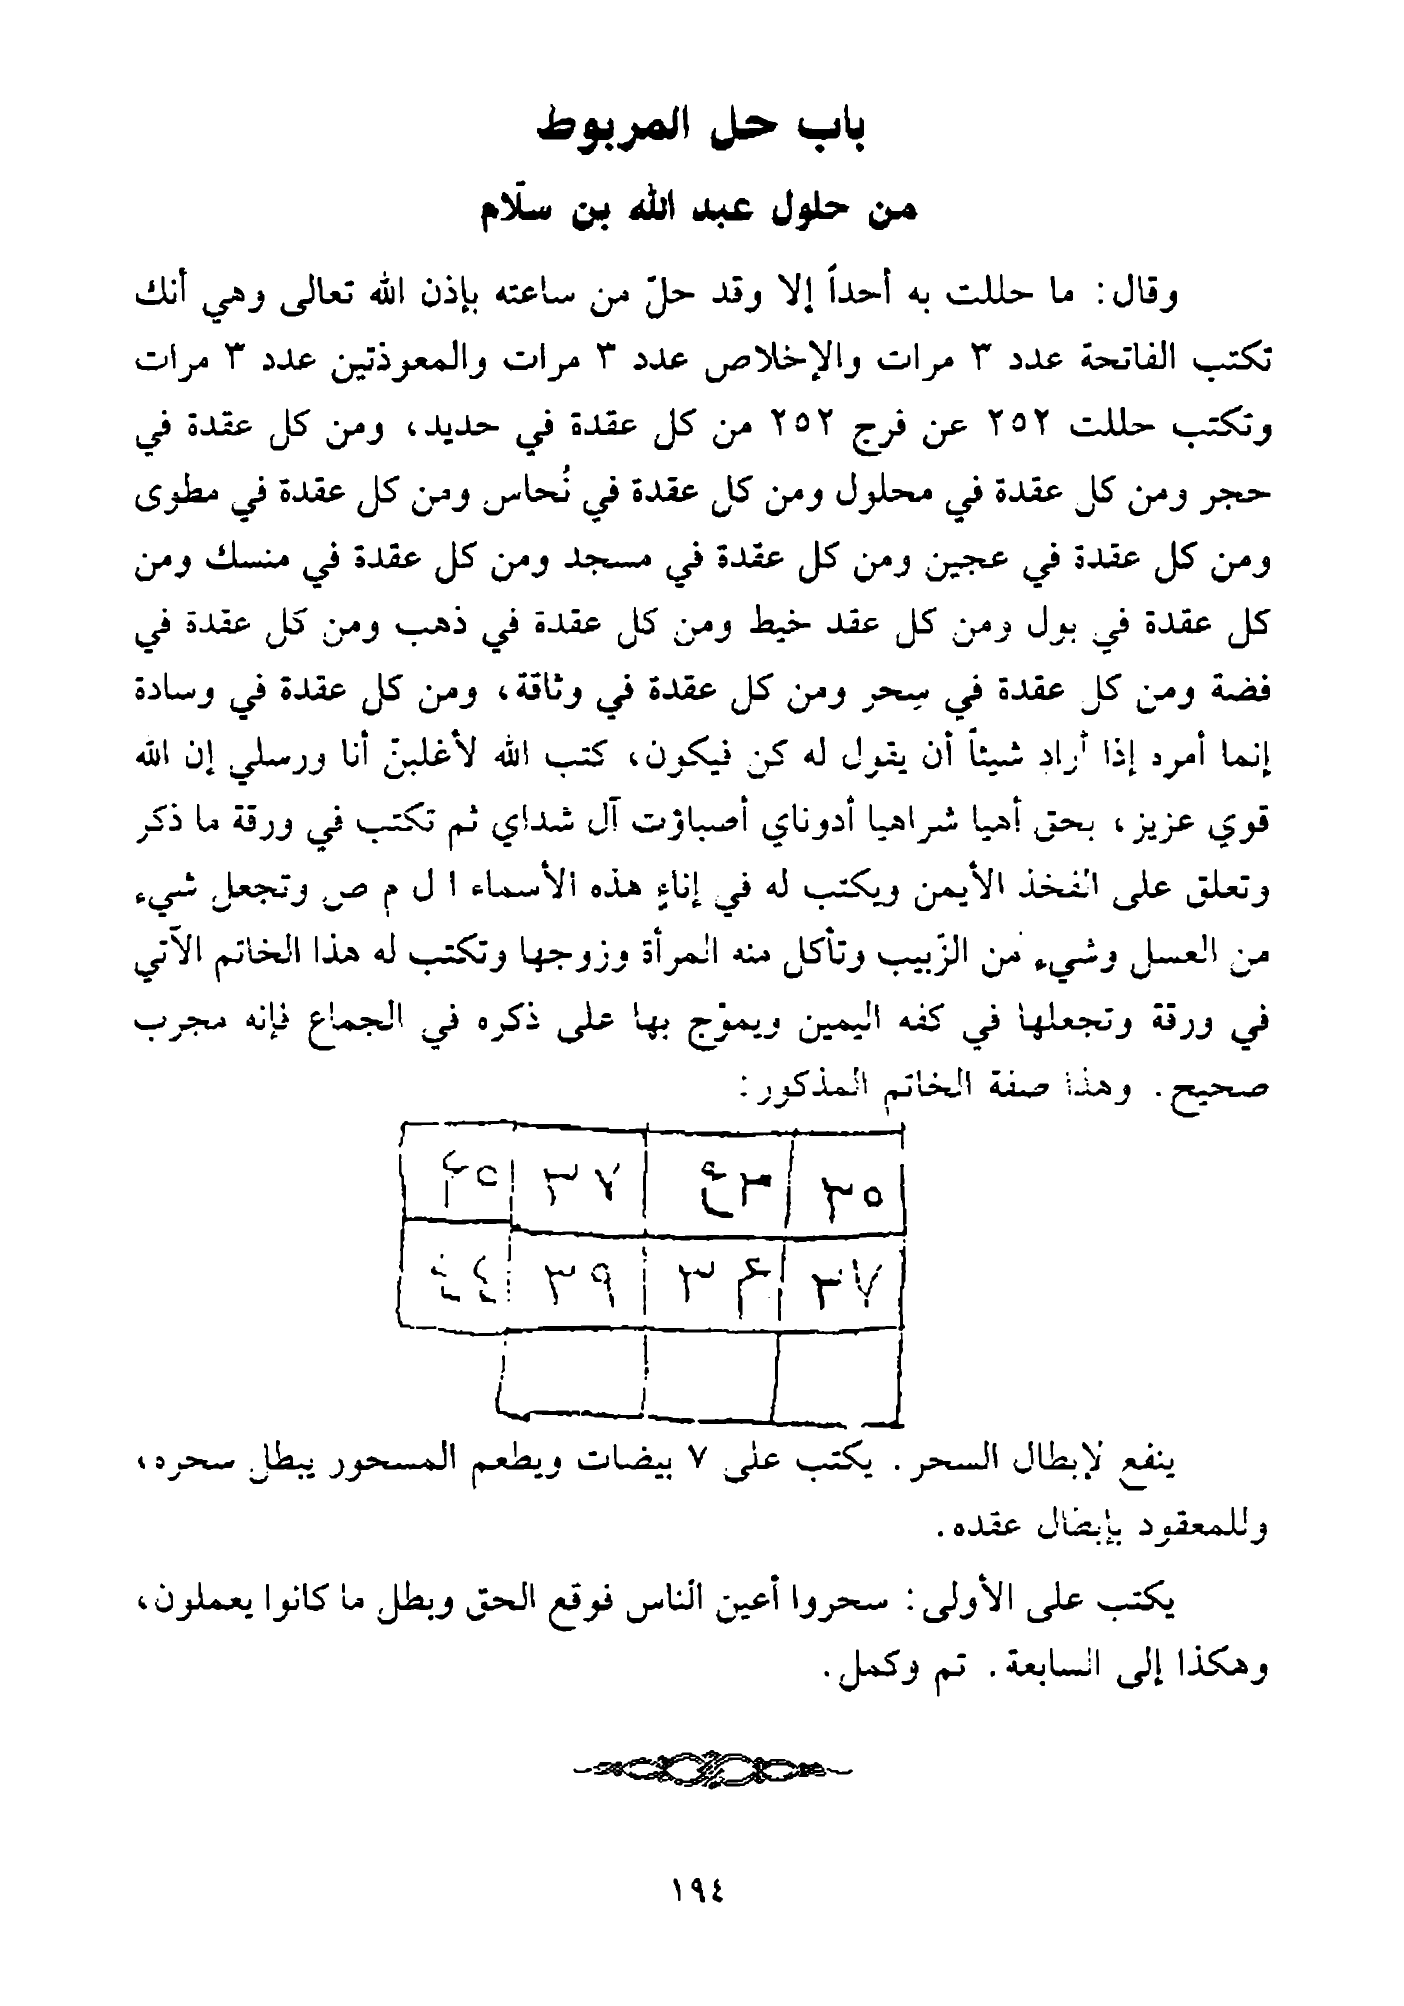 باب حل المربوط
من حلول عبد الله بن سلّام
وقال: ما حللت به أحداً إلا وقد حلّ من ساعته بإذن الله تعالى وهي أنك
تكتب الفاتحة عدد ٣ مرات والإخلاص عدد ٣ مرات والمعوذتين عدد ٣ مرات
وتكتب حللت ٢٥٢ عن فرج ٢٥٢ من كل عقدة في حديد، ومن كل عقدة في
حجر ومن كل عقدة في محلول ومن كل عقدة في نُحاس ومن كل عقدة في مطوى
ومن كل عقدة في عجين ومن كل عقدة في مسجد ومن كل عقدة في منسك ومن
كل عقدة في بول ومن كل عقد خيط ومن كل عقدة في ذهب ومن كل عقدة في
فضة ومن كل عقدة في سِحر ومن كل عقدة في وثاقة، ومن كل عقدة في وسادة
إنما أمره إذا أراد شيئاً أن يقول له كن فيكون، كتب الله لأغلبنّ أنا ورسلي إن الله
قوي عزيز، بحق أهيا شراهيا أدوناي أصباؤت آل شداي ثم تكتب في ورقة ما ذكر
وتعلق على الفخذ الأيمن ويكتب له في إناءٍ هذه الأسماء ا ل م ص وتجعل شيء
من العسل وشيء من الزّبيب وتأكل منه المرأة وزوجها وتكتب له هذا الخاتم الآتي
في ورقة وتجعلها في كفه اليمين ويموّج بها على ذكره في الجماع فإنه مجرب
صحيح. وهذا صفة الخاتم المذكور:
٣٥ ٣٧
٣٧ ٣٦ ٣٩
ينفع لإبطال السحر. يكتب على ٧ بيضات ويطعم المسحور يبطل سحره،
وللمعقود بإبطال عقده.
يكتب على الأولى: سحروا أعين الناس فوقع الحق وبطل ما كانوا يعملون،
وهكذا إلى السابعة. تم وكمل.
١٩٤